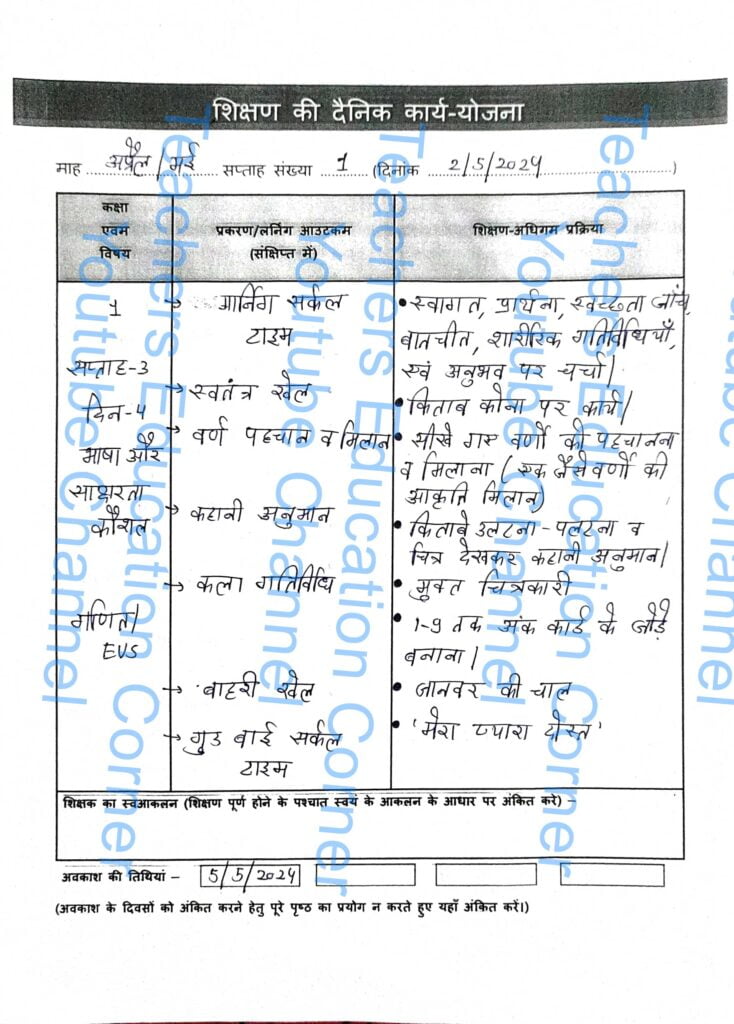 शिक्षण की दैनिक कार्य-योजना
माह अप्रैल/मई सप्ताह संख्या 1 (दिनांक 2/5/2024)
कक्षा
एवम
विषय
प्रकरण/लर्निंग आउटकम
(संक्षिप्त में)
शिक्षण-अधिगम प्रक्रिया
1
सप्ताह-3
दिन-4
भाषा और
साक्षरता
कौशल
गणित/
EVS
→ मार्निंग सर्कल
टाइम
→ स्वतंत्र खेल
→ वर्ण पहचान व मिलान
→ कहानी अनुमान
→ कला गतिविधि
→ बाहरी खेल
→ गुड बाई सर्कल
टाइम
• स्वागत, प्रार्थना, स्वच्छता जाँच,
बातचीत, शारीरिक गतिविधियाँ,
एवं अनुभव पर चर्चा।
• किताब कोना पर कार्य।
• सीखे गए वर्णो को पहचानना
व मिलाना (एक जैसे वर्णो की
आकृति मिलान)
• किताबे उलटना-पलटना व
चित्र देखकर कहानी अनुमान।
• मुक्त चित्रकारी
• 1-9 तक अंक कार्ड के जोड़े
बनाना।
• जानवर की चाल
• 'मेरा प्यारा दोस्त'
शिक्षक का स्वआकलन (शिक्षण पूर्ण होने के पश्चात स्वयं के आकलन के आधार पर अंकित करे) –
अवकाश की तिथियां – 5/5/2024
(अवकाश के दिवसों को अंकित करने हेतु पूरे पृष्ठ का प्रयोग न करते हुए यहाँ अंकित करें।)
Teachers Education Corner
Youtube Channel
Teachers Education Corner
Youtube Channel
Teachers Education Corner
Youtube Channel